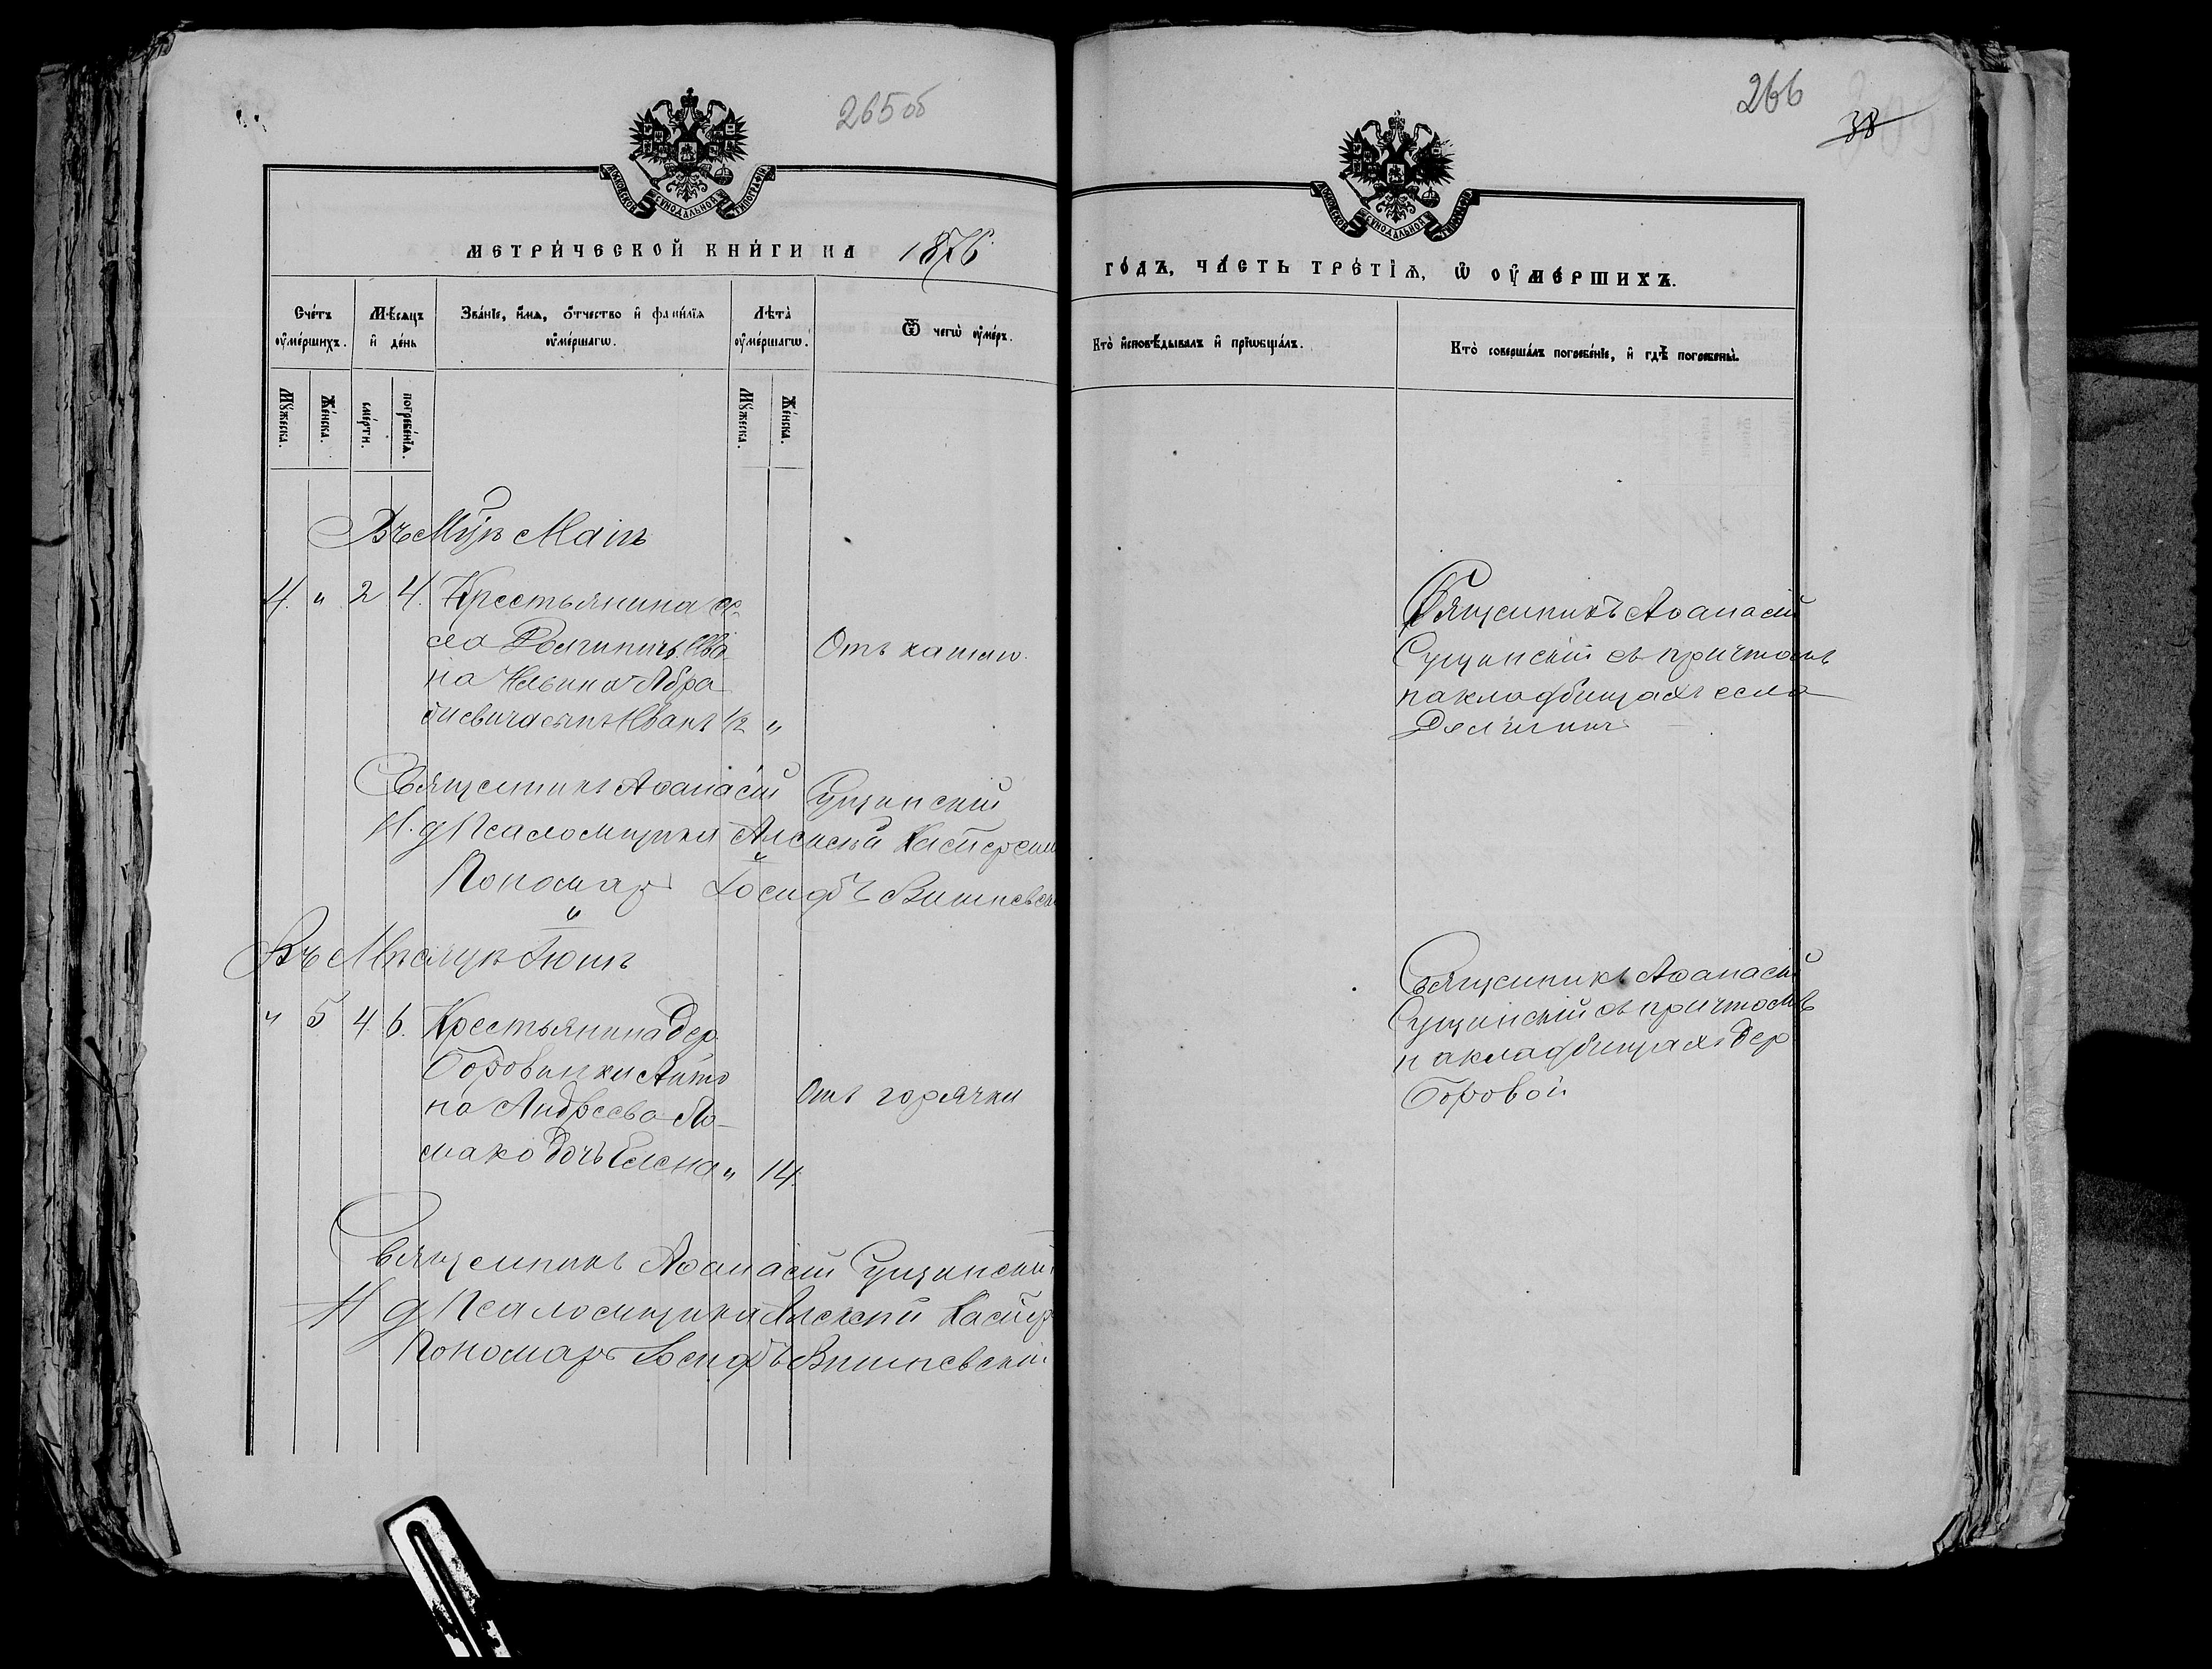 265об
МОСКОВСКОЙ СУНОДАЛЬНОЙ ТИПОГРАФІИ
МЕТРИ́ЧЕСКОЙ КНИ́ГИ НА 1876
Сче́тъ ᲂу҆ме́ршихъ.
Мѣ́сѧцъ и҆ де́нь
Зва́нїе, и҆́мѧ, ѻ҆́тчество и҆ фами́лїѧ ᲂу҆ме́ршагѡ.
Лѣ́та ᲂу҆ме́ршагѡ.
Ѿ чегѡ̀ ᲂу҆ме́ръ.
Мꙋ́жеска.
Же́нска.
сме́рти.
погребе́нїѧ.
Мꙋ́жеска.
Же́нска.
Въ Мцѣ Маіѣ
4. " 2 4. Крестьянина се
ла Ива
на Ильина
сынъ Иванъ 1/2 "
Отъ кашлю.
Священникъ Аѳанасій Сущинскій
И. д Псаломщика Алексѣй
Пономарь Іосифъ Вишневскі
Въ Мѣсяцѣ Іюнѣ
" 5 4 6. Крестьянина дер.
Боровинки Анто
на Андреева Ло-
мако дочь Елена " 14.
Отъ горячки
Священникъ Аѳанасій Сущинскій
И д Псаломщика Алексѣй
Пономарь Іосифъ Вишневскій
266
38
МОСКОВСКОЙ СУНОДАЛЬНОЙ ТИПОГРАФІИ
ГО́ДЪ, ЧА́СТЬ ТРЕ́ТЇѦ, Ѡ҆ ОУ҆МЕ́РШИХЪ.
Кто̀ и҆сповѣ́дывалъ и҆ прїѡбща́лъ.
Кто̀ соверша́лъ погребе́нїе, и҆ гдѣ̀ погребены̀.
Священникъ Аѳанасій
Сущинскій съ причтомъ
на кладбищахъ села
Священникъ Аѳанасій
Сущинскій съ причтомъ
на кладбищахъ дер
Боровой